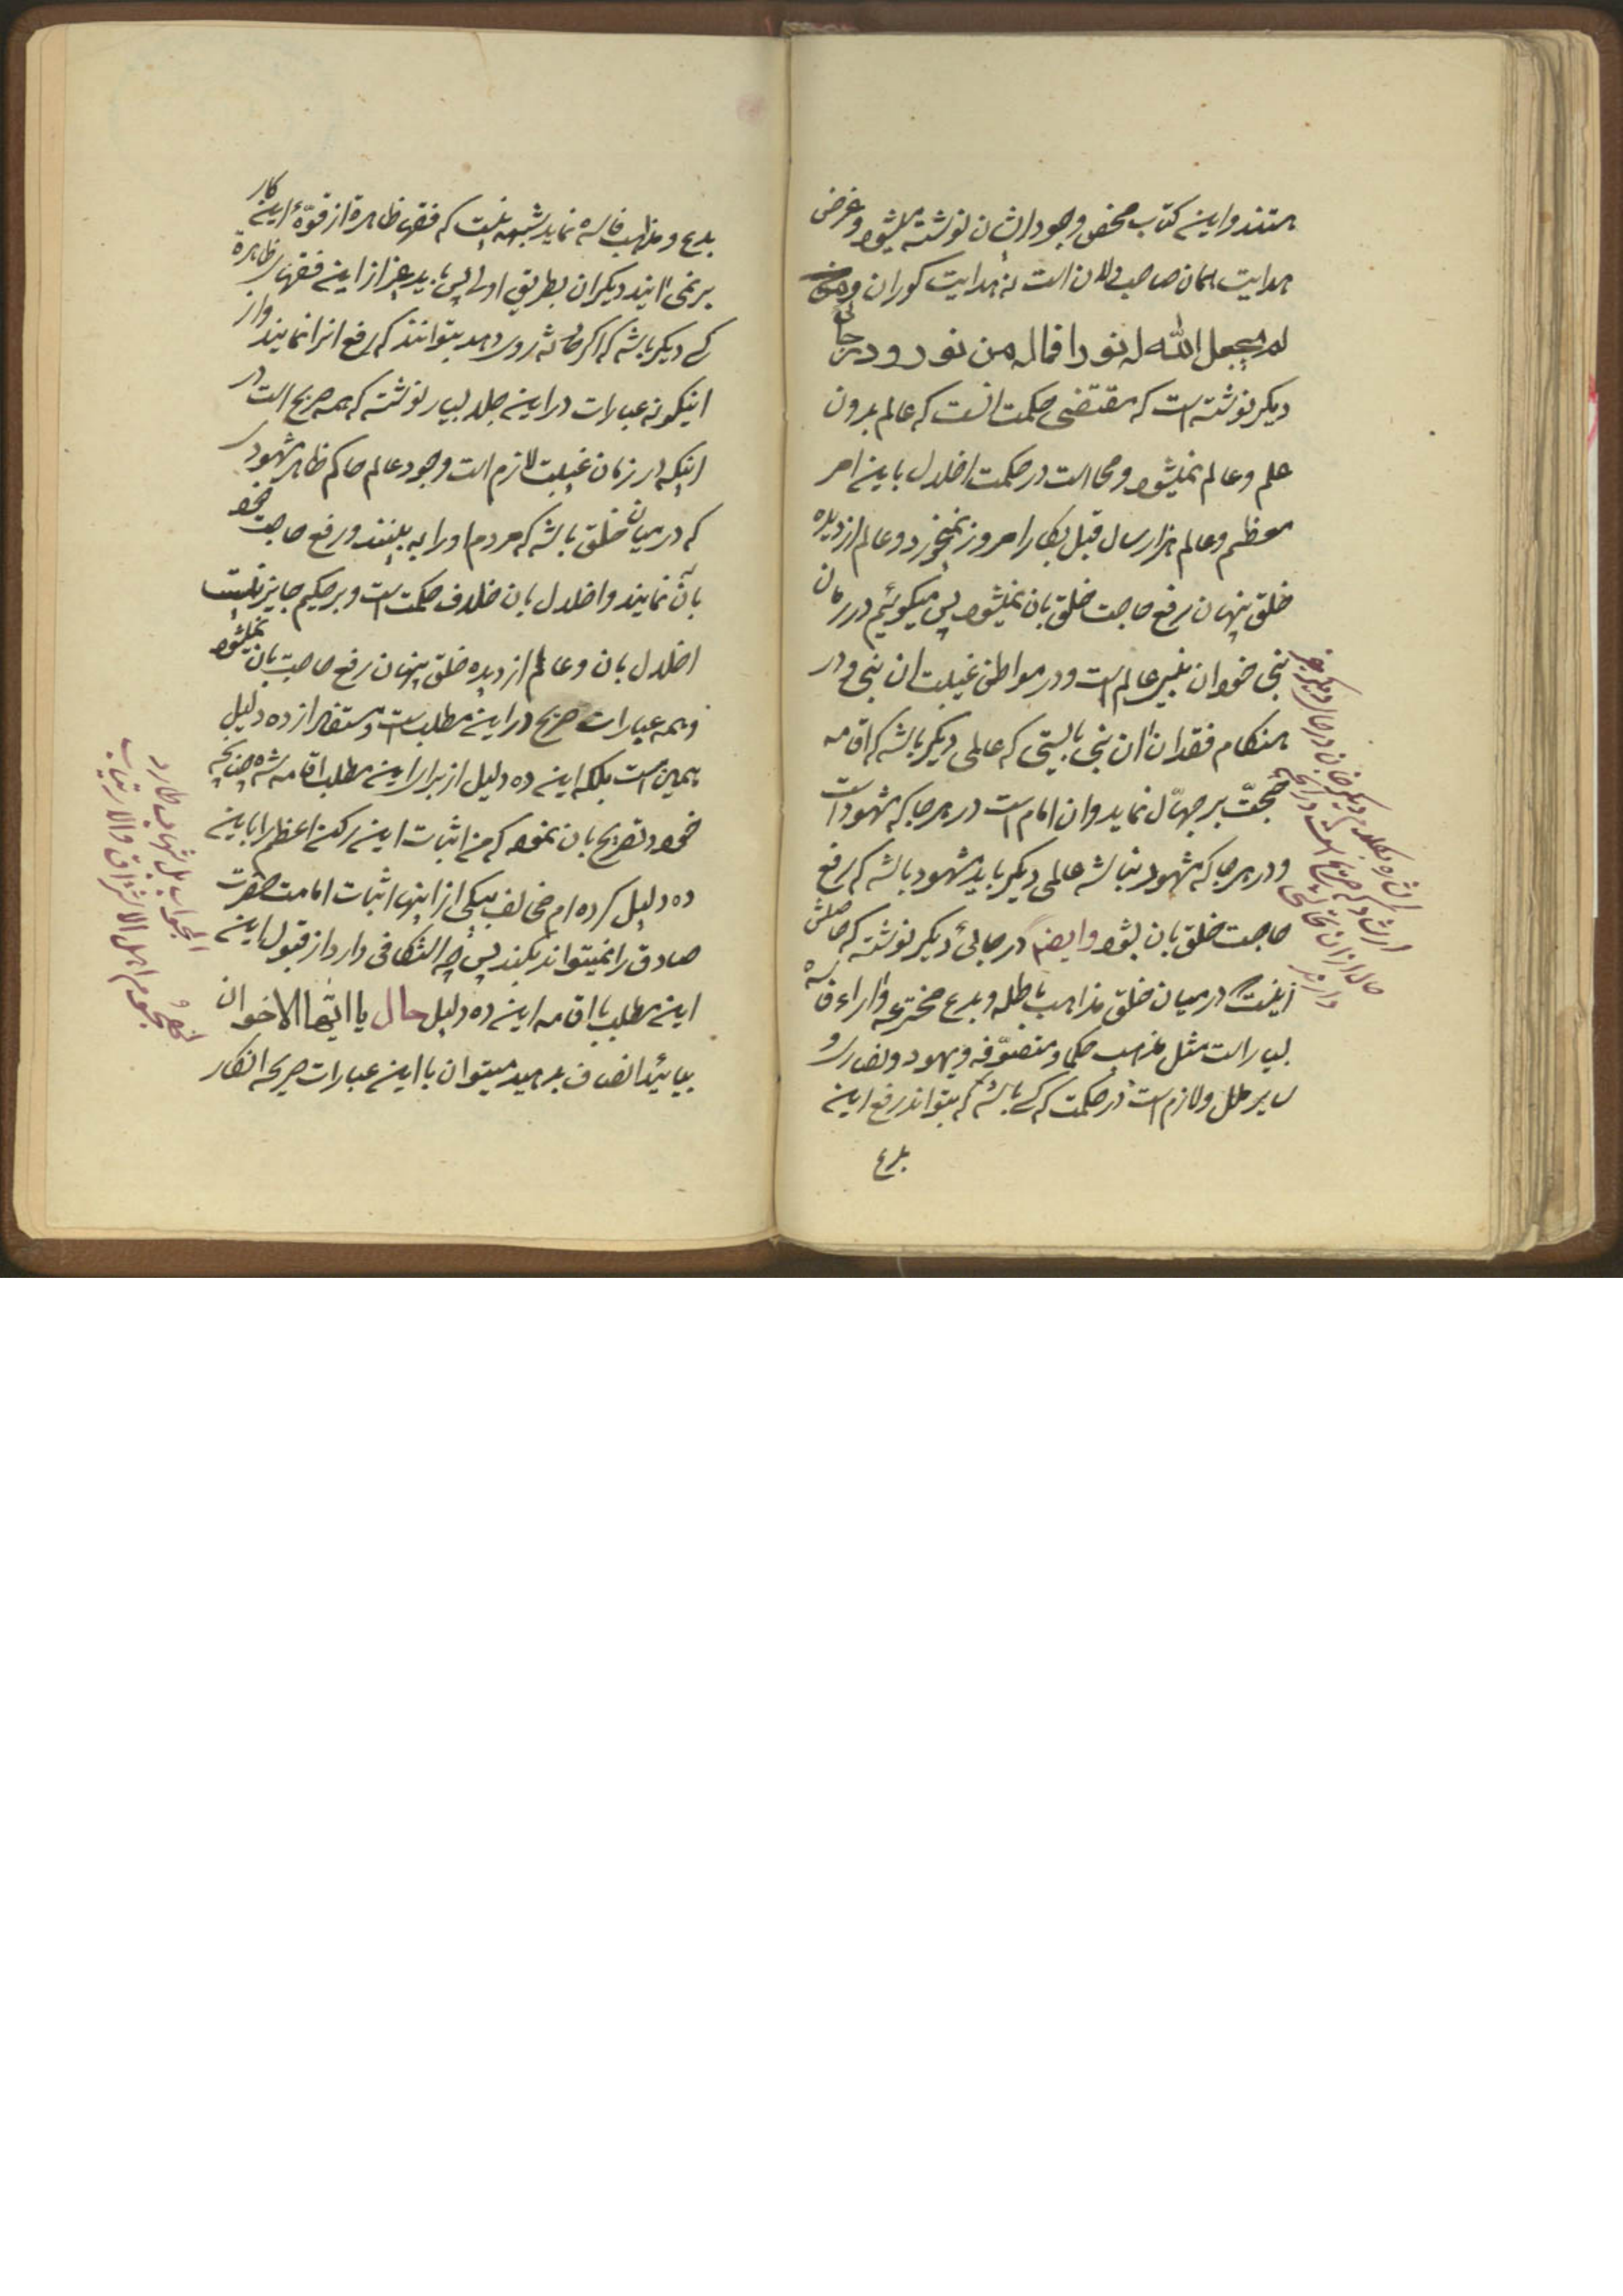 هستند و این کتاب محض وجود ایشان نوشته میشود و غرض
هدایت همان صاحبدلان است نه هدایت کوران و من
لم یجعل الله له نورا فماله من نور و در جائی
دیگر نوشته است که مقتضی حکمت انست که عالم بدون
علم و عالم نمیشود و محالست در حکمت اخلال باین امر
معظم و عالم هزار سال قبل بکار امروز نمیخورد و عالم از دیده
خلق پنهان رفع حاجت خلق بان نمیشود پس میکوئیم در زمان
نبی خود ان نبی عالم است و در مواطن غیبت ان نبی و در
هنکام فقدان ان نبی بایستی که عالمی دیکر باشد که اقامه
حجت بر جهّال نماید و ان امام است در هر جا که مشهود است
و در هر جا که مشهود نباشد عالمی دیکر باید مشهود باشد که رفع
حاجت خلق بان بشود وایضا در جائی دیکر نوشته که حاصلش
اینست که در میان خلق مذاهب باطله و بدع مخترعه و اراء فاسده
بسیار است مثل مذهب حکما و متصوّفه و یهود و نصاری و
سایر ملل و لازم است در حکمت که کسی باشد که بتواند رفع این
بدع
بدع و مذاهب فاسده نماید شبهه نیست که فقهاء ظاهره از قوّهٔ این کار
بر نمی ایند دیکران بطریق اولی پس باید غیر از این فقهای ظاهره
کسی دیکر باشد که اکر خانه شد روی دهد بتوانند که رفع انرا نمایند و از
اینکونه عبارات در این جلد بسیار نوشته که همه صریح است در
اینکه در زمان غیبت لازم است وجود عالم حاکم ظاهر مشهودی
که در میان خلق باشد که مردم او را به بینند و رفع حاجت خود
بان نمایند و اخلال بان خلاف حکمت است و بر حکیم جایز نیست
اخلال بان و عالم از دیده خلق پنهان رفع حاجت بان نمیشود
و همه عبارات صریح در این مطلب است و مستفاد از ده دلیل
همین است بلکه این ده دلیل از برای این مطلب اقامه شده چنانچه
خود تصریح بان نموده که من اثبات این رکن اعظم را باین
ده دلیل کرده ام مخالف بیکی از اینها اثبات امامت حضرت
صادق را نمیتواند بکند پس چه استنکافی دارد از قبول این
این مطلب با اقامه این ده دلیل حال یا ایّها الاخوان
بیائید انصاف بدهید میتوان با این عبارات صریحه انکار